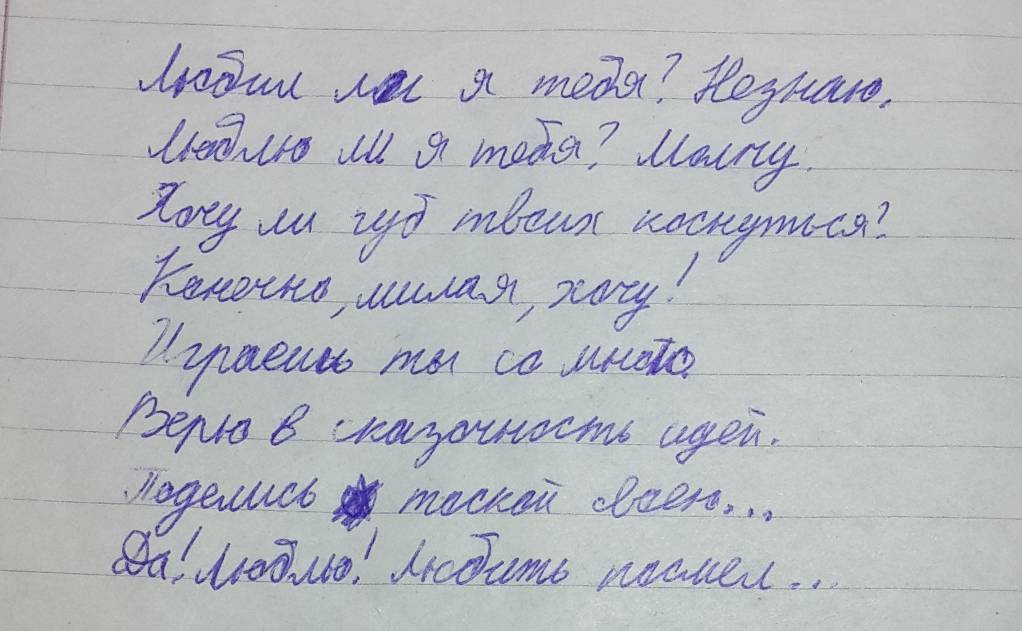 Любил ли я тебя? Незнаю.
Люблю ли я тебя? Молчу.
Хочу ли губ твоих коснуться?
Конечно, милая, хочу!
Играешь ты со мною.
Верю в сказочность идей.
Поделись тоской своею...
Да! Люблю! Любить посмел...